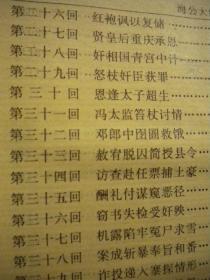 第二十六回 红袍讽以复储
第二十七回 贤皇后重庆承恩
第二十八回 奸相国青宫中计
第二十九回 怒杖奸臣获罪
第三十回 恩逢太子超生
第三十一回 冯太监笞杖讨情
第三十二回 邓郎中囹圄救饿
第三十三回 赦宥脱囚简授县令
第三十四回 访查赴任票捕土豪
第三十五回 酬礼付谋窥恶径
第三十六回 窃书失检受奸殃
第三十七回 机露陷牢冤尸求雪
第三十八回 案成斩暴奉旨和番
诈投递入寨探情形